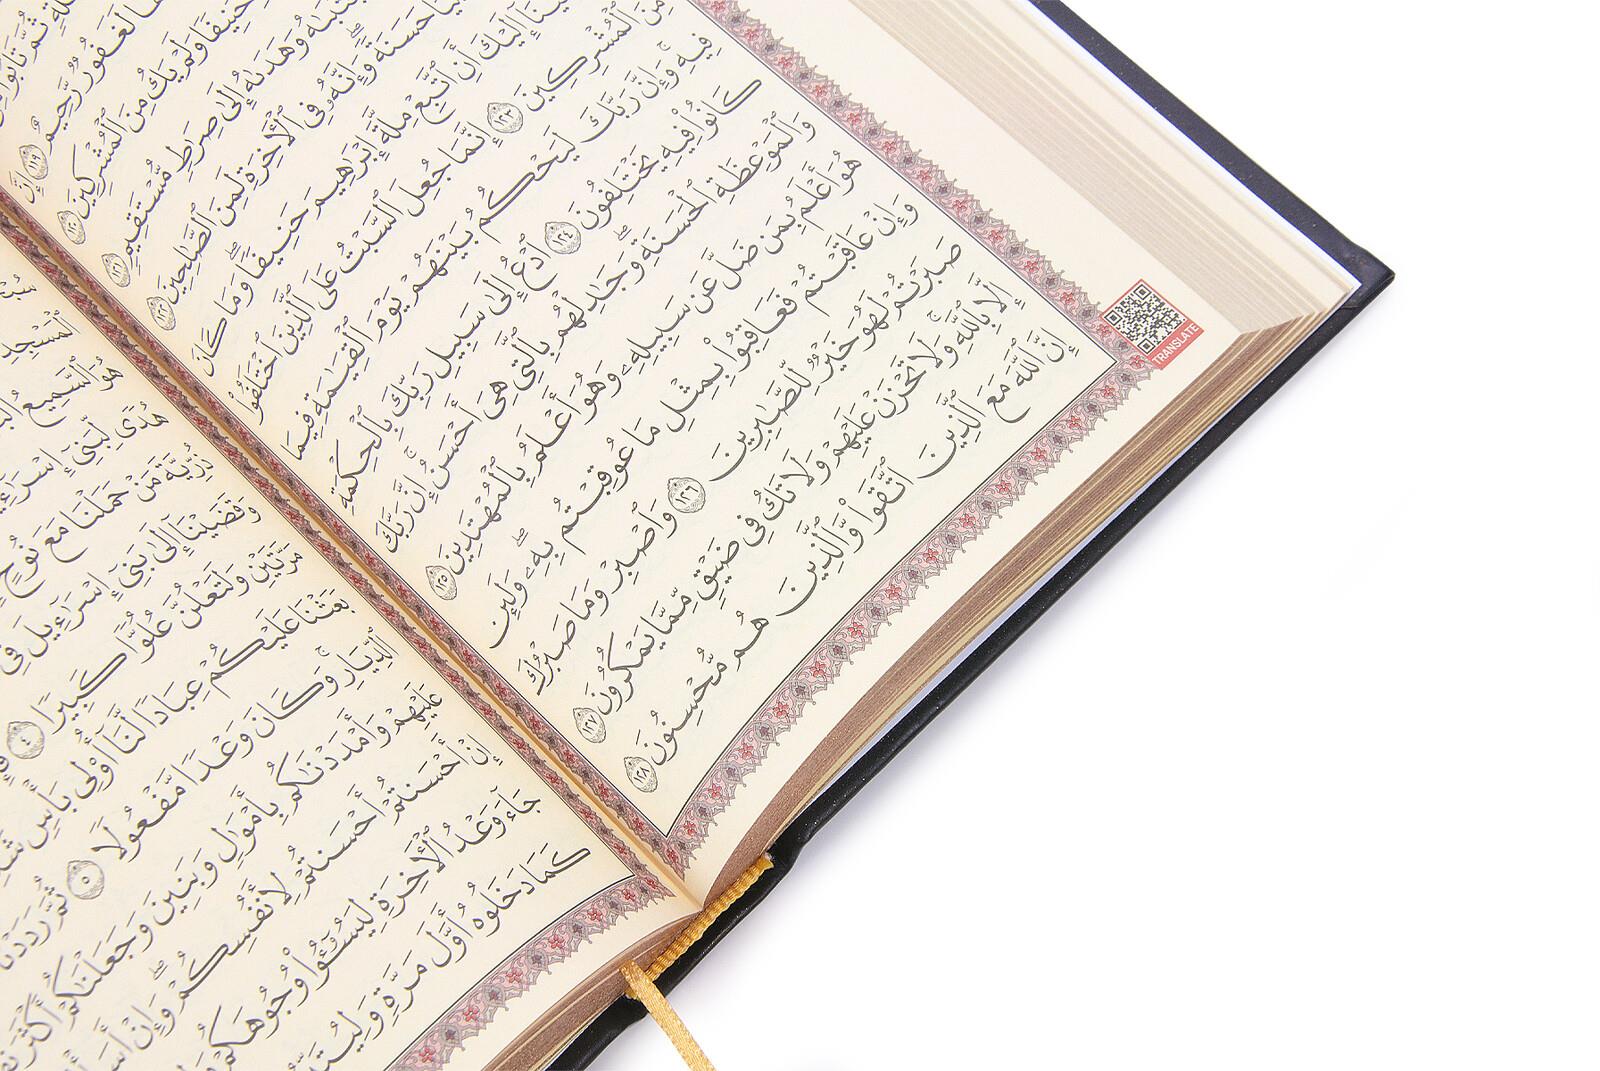 ثُمَّ تَابُوا۟
لَغَفُورٌ رَّحِيمٌ ١١٩ إِنَّ
حَنِيفًا وَلَمْ يَكُ مِنَ ٱلْمُشْرِكِينَ ١٢٠
وَهَدَىٰهُ إِلَىٰ صِرَٰطٍ مُّسْتَقِيمٍ ١٢١
حَسَنَةً ۖ وَإِنَّهُۥ فِى ٱلْـَٔاخِرَةِ لَمِنَ ٱلصَّٰلِحِينَ ١٢٢
إِلَيْكَ أَنِ ٱتَّبِعْ مِلَّةَ إِبْرَٰهِيمَ حَنِيفًا ۖ وَمَا كَانَ
مِنَ ٱلْمُشْرِكِينَ ١٢٣ إِنَّمَا جُعِلَ ٱلسَّبْتُ عَلَى ٱلَّذِينَ ٱخْتَلَفُوا۟
فِيهِ ۚ وَإِنَّ رَبَّكَ لَيَحْكُمُ بَيْنَهُمْ يَوْمَ ٱلْقِيَٰمَةِ فِيمَا
كَانُوا۟ فِيهِ يَخْتَلِفُونَ ١٢٤ ٱدْعُ إِلَىٰ سَبِيلِ رَبِّكَ بِٱلْحِكْمَةِ
وَٱلْمَوْعِظَةِ ٱلْحَسَنَةِ ۖ وَجَٰدِلْهُم بِٱلَّتِى هِىَ أَحْسَنُ ۚ إِنَّ رَبَّكَ
هُوَ أَعْلَمُ بِمَن ضَلَّ عَن سَبِيلِهِۦ ۖ وَهُوَ أَعْلَمُ بِٱلْمُهْتَدِينَ ١٢٥
وَإِنْ عَاقَبْتُمْ فَعَاقِبُوا۟ بِمِثْلِ مَا عُوقِبْتُم بِهِۦ ۖ وَلَئِن
صَبَرْتُمْ لَهُوَ خَيْرٌ لِّلصَّٰبِرِينَ ١٢٦ وَٱصْبِرْ وَمَا صَبْرُكَ
إِلَّا بِٱللَّهِ ۚ وَلَا تَحْزَنْ عَلَيْهِمْ وَلَا تَكُ فِى ضَيْقٍ مِّمَّا يَمْكُرُونَ ١٢٧
إِنَّ ٱللَّهَ مَعَ ٱلَّذِينَ ٱتَّقَوا۟ وَّٱلَّذِينَ هُم مُّحْسِنُونَ ١٢٨
TRANSLATE
ٱلْمَسْجِدِ
هُوَ ٱلسَّمِيعُ
هُدًى لِّبَنِىٓ
ذُرِّيَّةَ مَنْ حَمَلْنَا مَعَ نُوحٍ
وَقَضَيْنَآ إِلَىٰ بَنِىٓ إِسْرَٰٓءِيلَ فِى
مَرَّتَيْنِ وَلَتَعْلُنَّ عُلُوًّا كَبِيرًا ٤
بَعَثْنَا عَلَيْكُمْ عِبَادًا لَّنَآ أُو۟لِى بَأْسٍ
ٱلدِّيَارِ ۚ وَكَانَ وَعْدًا مَّفْعُولًا ٥ ثُمَّ رَدَدْنَا
عَلَيْهِمْ وَأَمْدَدْنَٰكُم بِأَمْوَٰلٍ وَبَنِينَ وَجَعَلْنَٰكُمْ أَكْثَرَ
إِنْ أَحْسَنتُمْ أَحْسَنتُمْ لِأَنفُسِكُمْ ۖ وَإِنْ
جَآءَ وَعْدُ ٱلْـَٔاخِرَةِ لِيَسُـۥٓـُٔوا۟ وُجُوهَكُمْ
كَمَا دَخَلُوهُ أَوَّلَ مَرَّةٍ